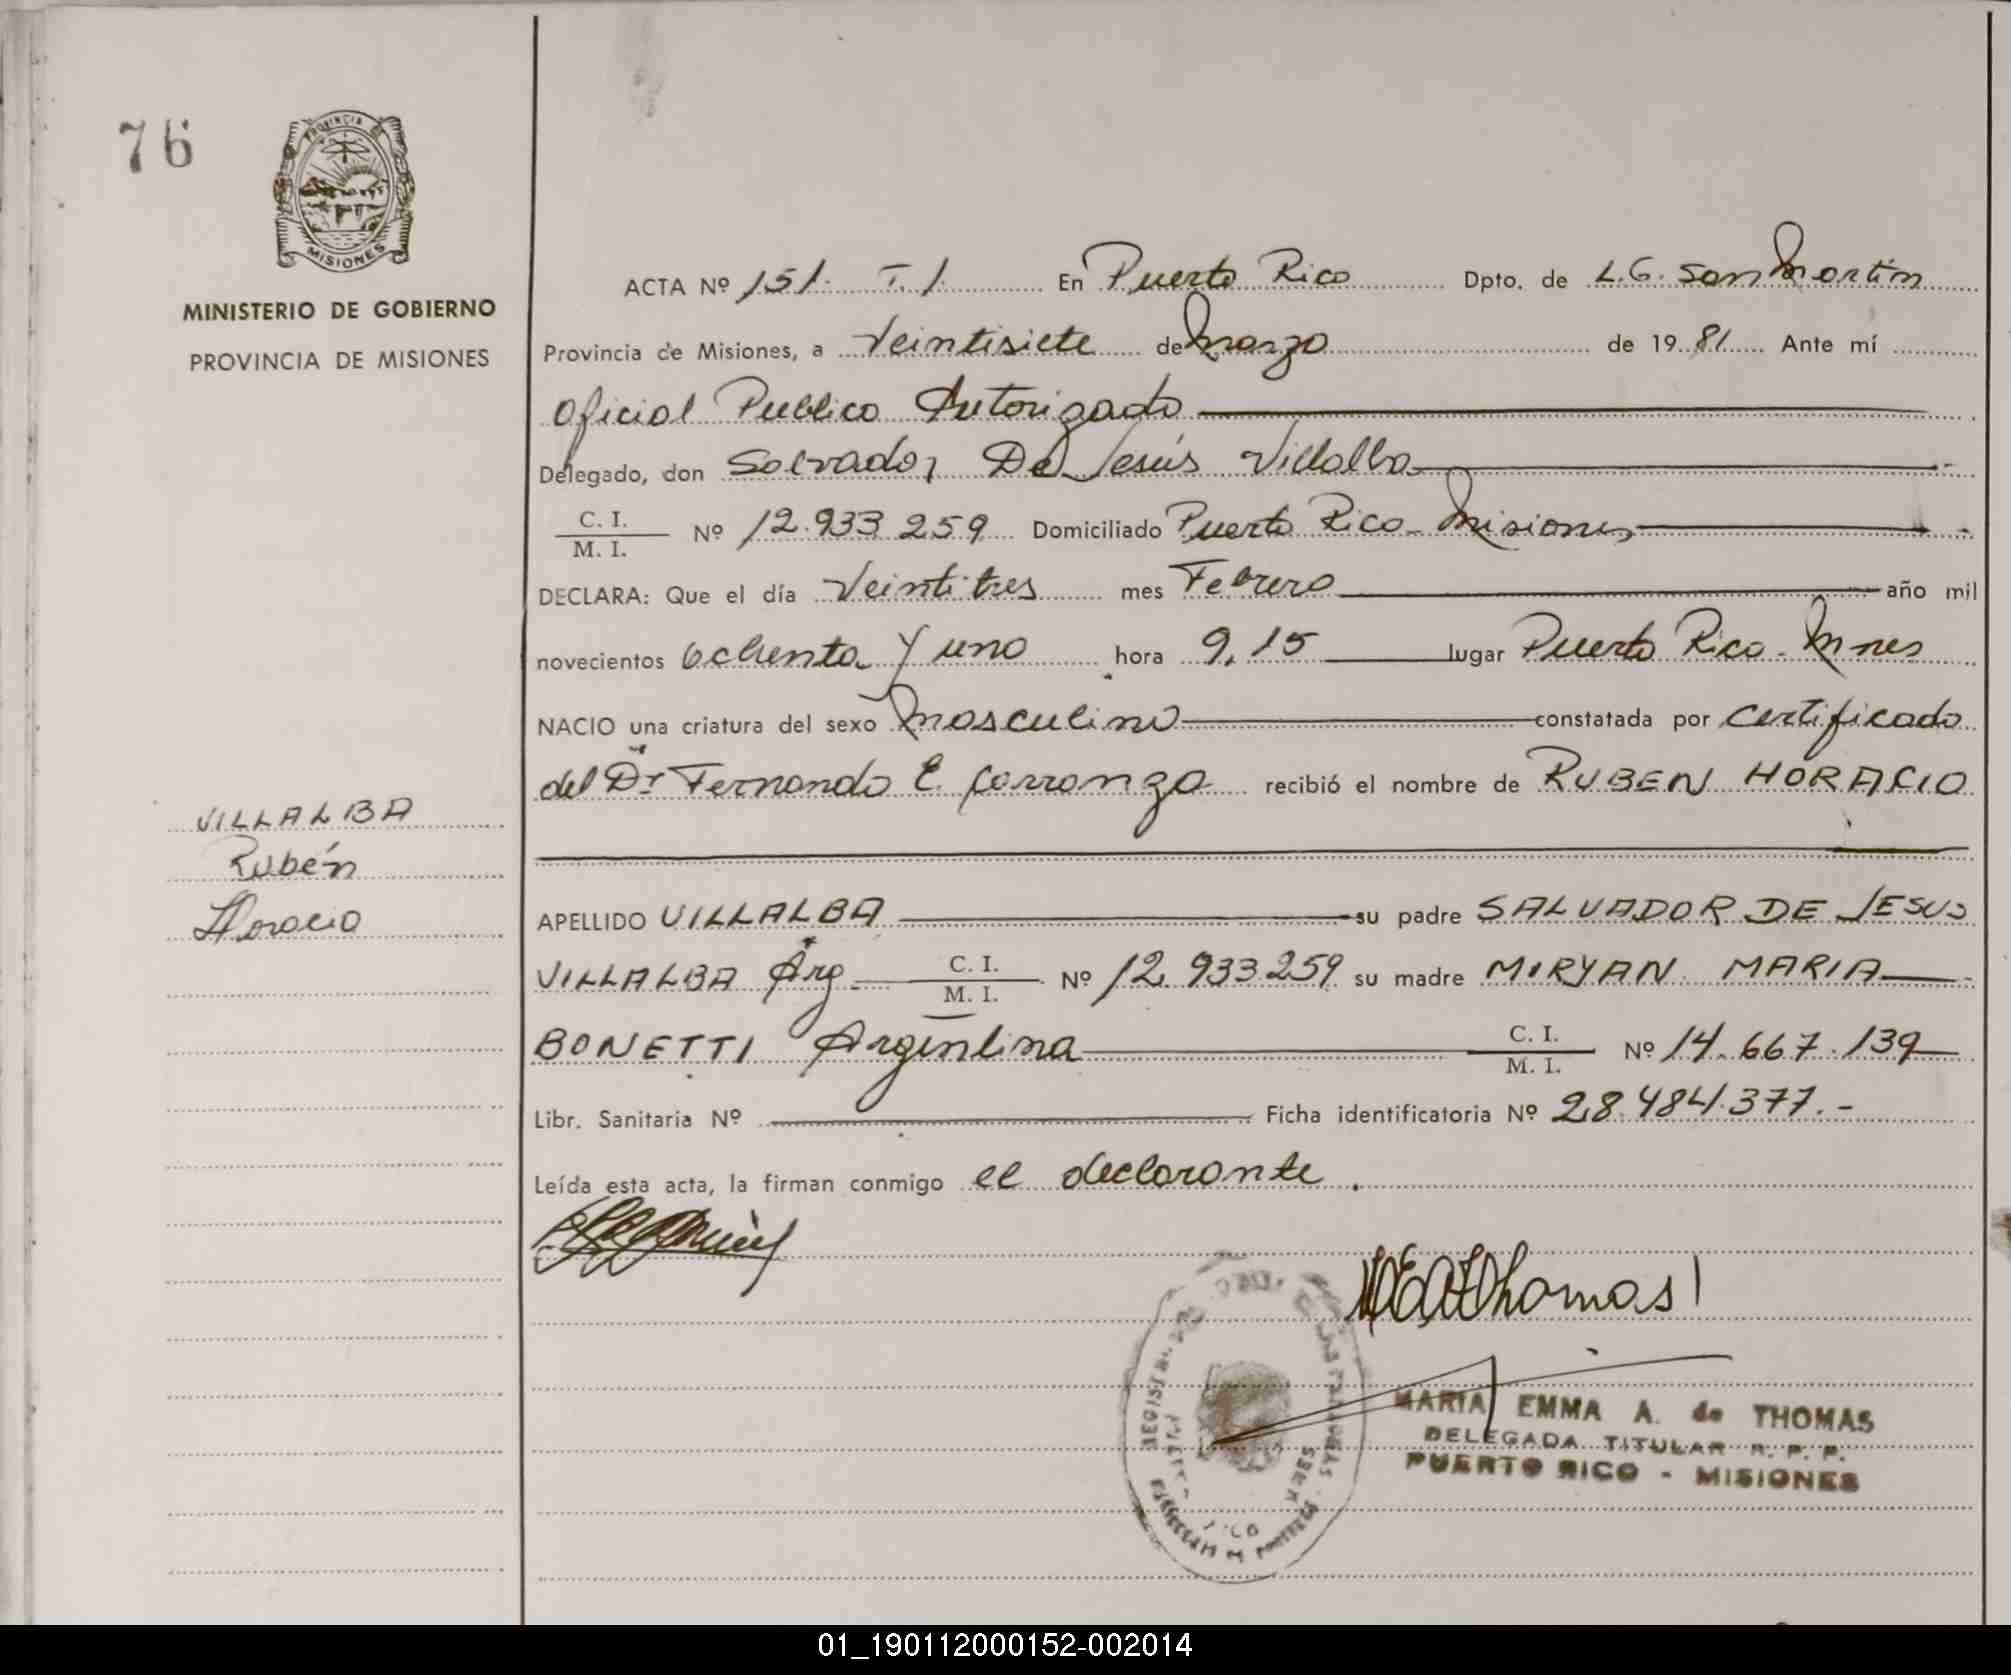 76
PROVINCIA DE
MISIONES
MINISTERIO DE GOBIERNO
PROVINCIA DE MISIONES
VILLALBA
Rubén
Horacio
ACTA Nº 151. T. 1. En Puerto Rico Dpto. de L. G. San Martín
Provincia de Misiones, a Veintisiete de Marzo de 1981 Ante mí
Oficial Publico Autorizado
Delegado, don Salvador De Jesús Villalba
C. I.
M. I. Nº 12.933 259 Domiciliado Puerto Rico - Misiones
DECLARA: Que el día Veintitres mes Febrero año mil
novecientos ochenta y uno hora 9,15 lugar Puerto Rico - Mnes
NACIO una criatura del sexo Masculino constatada por Certificado
del Dr Fernando E. Carranza recibió el nombre de RUBEN HORACIO
APELLIDO VILLALBA su padre SALVADOR DE JESUS
VILLALBA Arg. C. I. M. I. Nº 12.933.259 su madre MIRYAN MARIA
BONETTI Argentina C. I. M. I. Nº 14.667.139
Libr. Sanitaria Nº Ficha identificatoria Nº 28.484.377.-
Leída esta acta, la firman conmigo el declarante.
Thomas
MARIA EMMA A. de THOMAS
DELEGADA TITULAR R. P. P.
PUERTO RICO - MISIONES
01_190112000152-002014